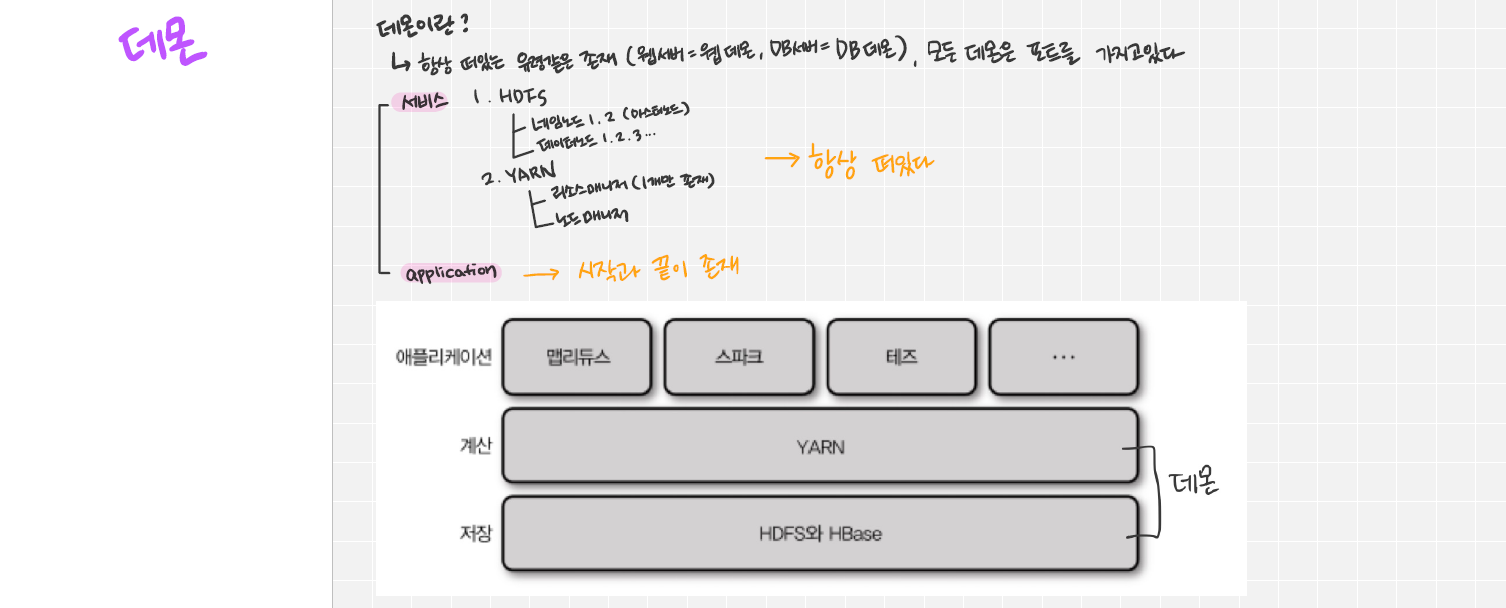 데몬
데몬이란?
↳ 항상 떠있는 유령같은 존재 (웹서버=웹데몬, DB서버=DB데몬), 모든 데몬은 포트를 가지고있다
서비스
1. HDFS
네임노드 1.2 (마스터노드)
데이터노드 1.2.3...
2. YARN
리소스매니저 (1개만 존재)
노드매니저
→ 항상 떠있다
application → 시작과 끝이 존재
애플리케이션 맵리듀스 스파크 테즈 ...
계산 YARN
데몬
저장 HDFS와 HBase